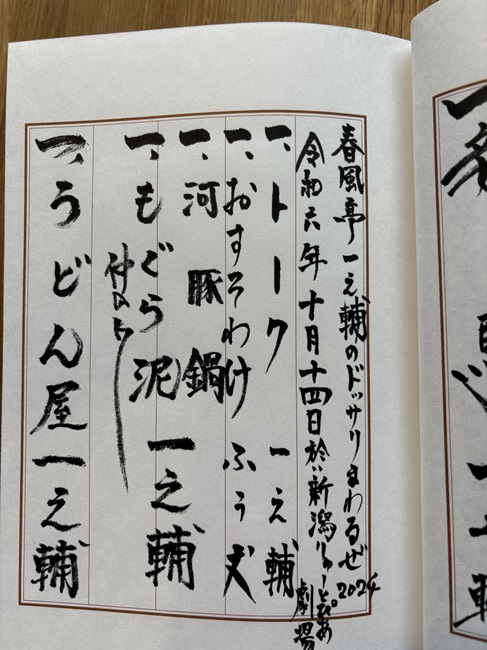 春風亭一之輔のドッサリまわるぜ2024
令和六年十月十四日於：新潟りゅーとぴあ劇場
一、トーク 一之輔
一、おすそわけ ふう丈
一、河豚鍋
一、もぐら泥 一之輔
仲入り
一、うどん屋 一之輔